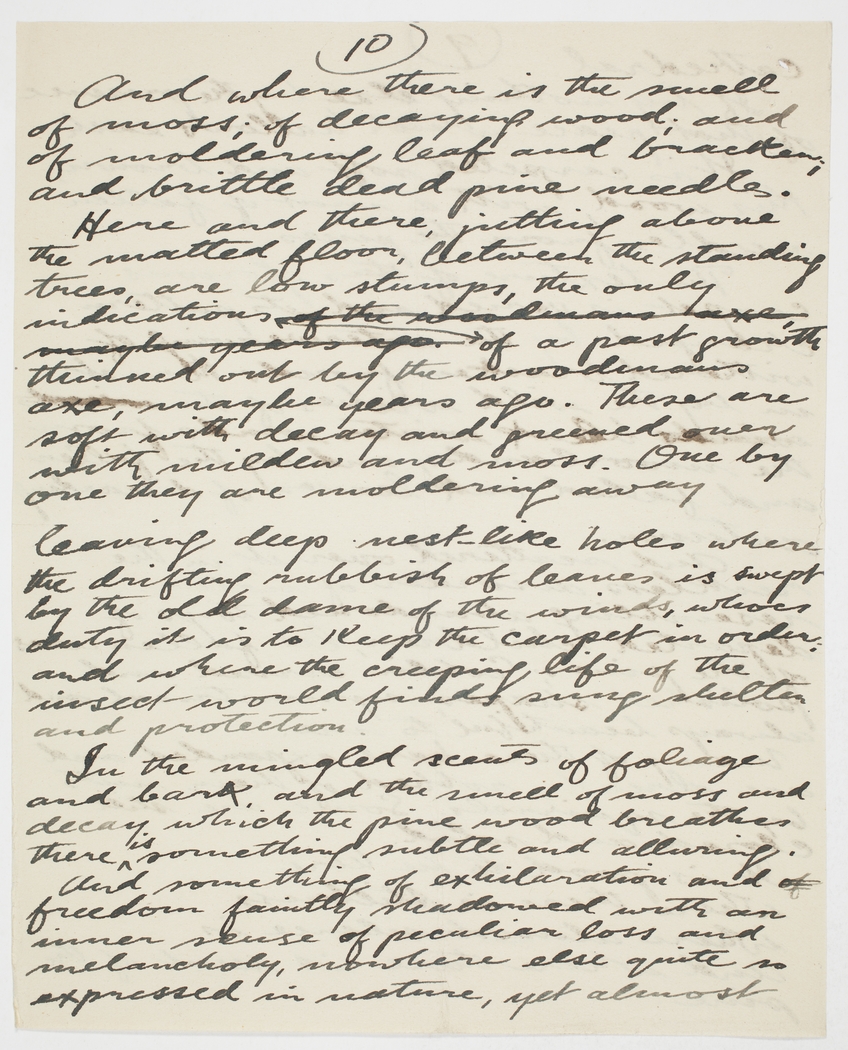 10
And where there is the smell
of moss; of decaying wood; and
of moldering leaf and bracken;
and brittle dead pine needles.
Here and there, jutting above
the matted floor, between the standing
trees, are low stumps, the only
indications of the woodmans axe,
maybe years ago. of a past growth
thinned out by the woodmans
axe, maybe years ago. These are
soft with decay and greened over
with mildew and moss. One by
one they are moldering away
leaving deep nest-like holes where
the drifting rubbish of leaves is swept
by the old dame of the winds, whoes
duty it is to keep the carpet in order;
and where the creeping life of the
insect world finds snug shelter
and protection.
In the mingled scents of foliage
and bark, and the smell of moss and
decay which the pine wood breathes
there is something subtle and alluring.
And something of exhilaration and of
freedom faintly shadowed with an
inner sense of peculiar loss and
melancholy, nowhere else quite so
expressed in nature, yet almost